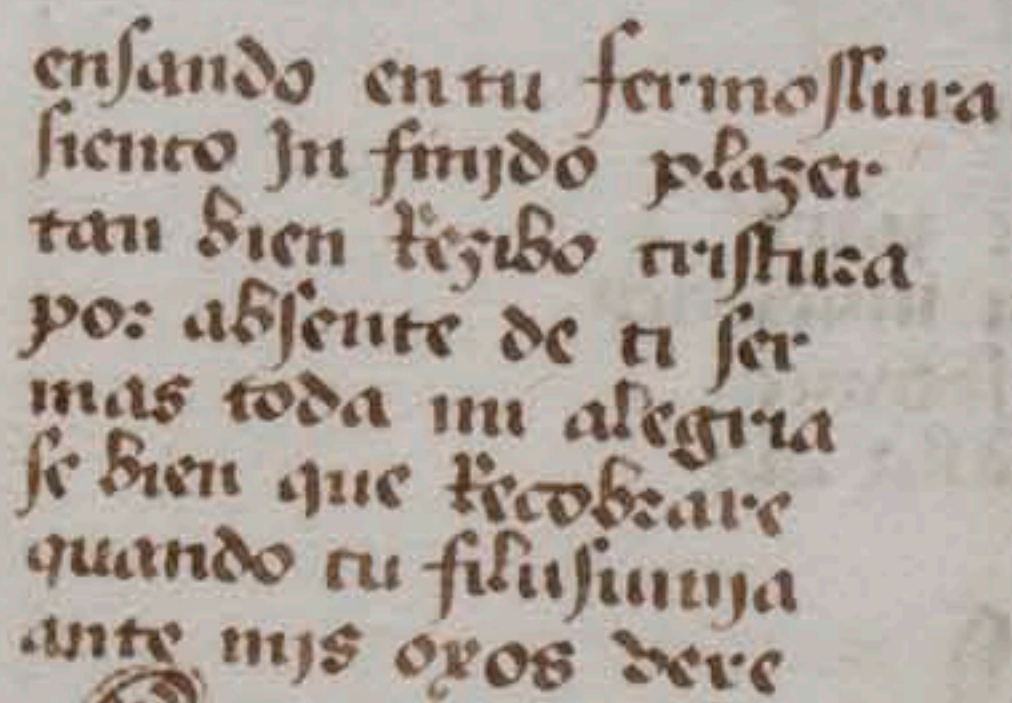 ensando en tu fermossura
siento Jn finjdo plazer
tan bien Rezibo tristura
por absente de ti ser
mas toda mi alegria
se bien que Recobrare
quando tu filusumja
ante mjs oxos vere